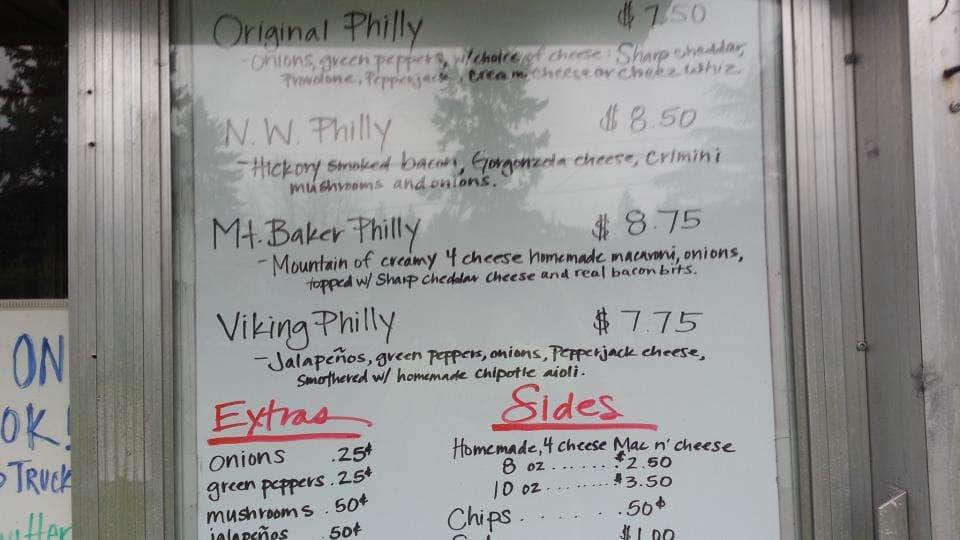 Original Philly $7.50
- Onions, green peppers, w/choice of cheese: Sharp cheddar,
Provolone, Pepperjack, cream cheese or cheez whiz
N.W. Philly $8.50
- Hickory smoked bacon, Gorgonzola cheese, Crimini
mushrooms and onions.
Mt. Baker Philly $8.75
- Mountain of creamy 4 cheese homemade macaroni, onions,
topped w/ Sharp cheddar cheese and real bacon bits.
Viking Philly $7.75
- Jalapeños, green peppers, onions, Pepperjack cheese,
Smothered w/ homemade chipotle aioli.
Extras
onions .25¢
green peppers .25¢
mushrooms .50¢
jalapeños .50¢
Sides
Homemade, 4 cheese Mac n' cheese
8 oz ...... $2.50
10 oz ........ $3.50
Chips . . . . . .50¢
$1.00
ON
OK!
TRUCK